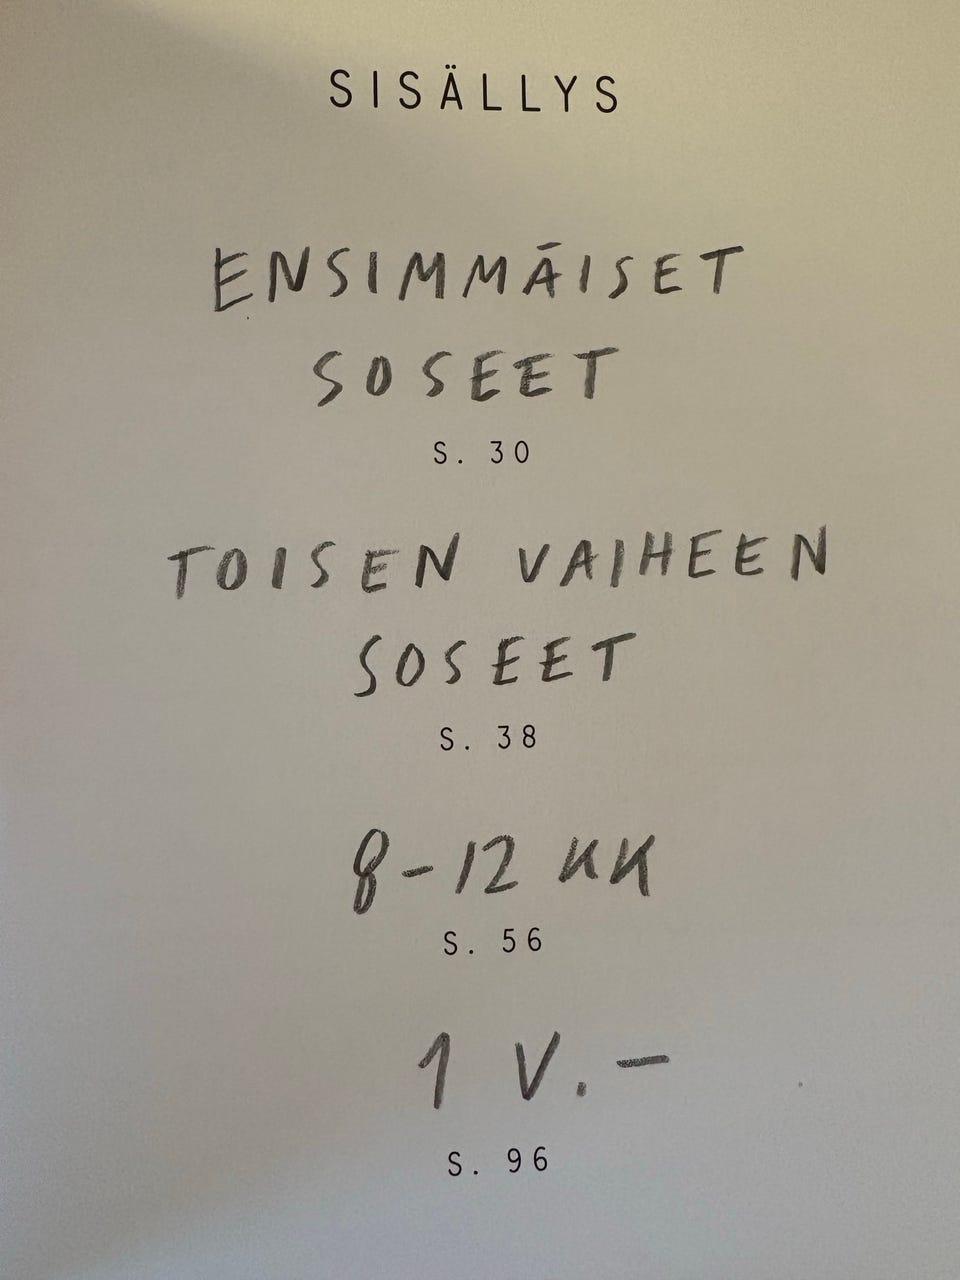 SISÄLLYS
ENSIMMÄISET
SOSEET
S. 30
TOISEN VAIHEEN
SOSEET
S. 38
8-12 KK
S. 56
1 V.-
S. 96